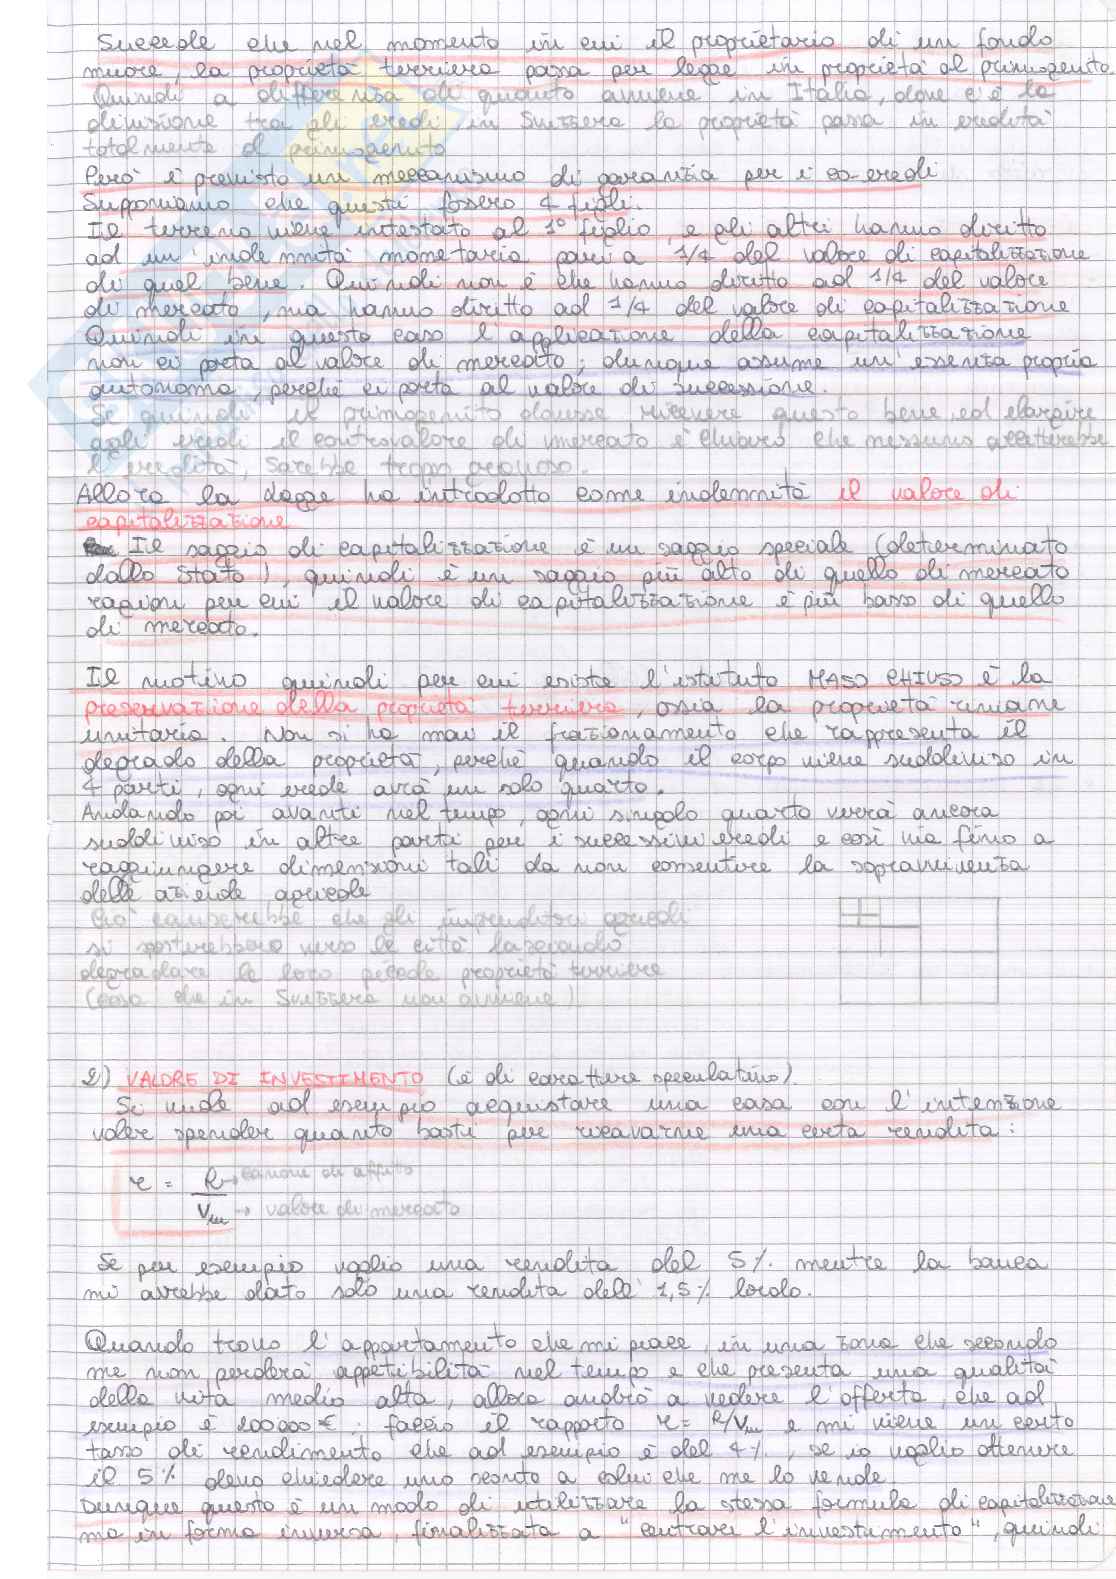 Succede che nel momento in cui il proprietario di un fondo
muore, la proprietà terriera passa per legge in proprietà al primogenito
Quindi a differenza di quanto avviene in Italia, dove c'è la
divisione tra gli eredi in Svizzera la proprietà passa in eredità
totalmente al primogenito
Però è previsto un meccanismo di garanzia per i co-eredi
Supponiamo che questi fossero 4 figli.
Il terreno viene intestato al 1° figlio, e gli altri hanno diritto
ad un'indennità monetaria pari a 1/4 del valore di capitalizzazione
di quel bene. Quindi non è che hanno diritto ad 1/4 del valore
di mercato, ma hanno diritto ad 1/4 del valore di capitalizzazione
Quindi in questo caso l'applicazione della capitalizzazione
non ci porta al valore di mercato; dunque assume un'essenza propria
autonoma, perché ci porta al valore di successione.
Se quindi il primogenito dovesse ricevere questo bene, ed elargire
agli eredi il controvalore di mercato è chiaro che nessuno accetterebbe
l'eredità, sarebbe troppo oneroso.
Allora la legge ha introdotto come indennità il valore di
capitalizzazione
Il saggio di capitalizzazione è un saggio speciale (determinato
dallo Stato), quindi è un saggio più alto di quello di mercato
ragion per cui il valore di capitalizzazione è più basso di quello
di mercato.
Il motivo quindi per cui esiste l'istituto MASO CHIUSO è la
preservazione della proprietà terriera, ossia la proprietà rimane
unitaria. Non si ha mai il frazionamento che rappresenta il
degrado della proprietà, perché quando il corpo viene suddiviso in
4 parti, ogni erede avrà un solo quarto.
Andando poi avanti nel tempo, ogni singolo quarto verrà ancora
suddiviso in altre parti per i successivi eredi e così via fino a
raggiungere dimensioni tali da non consentire la sopravvivenza
delle aziende agricole
Ciò causerebbe che gli imprenditori agricoli
si sposterebbero verso le città lasciando
degradare le loro piccole proprietà terriere
(cosa che in Svizzera non avviene)
2) VALORE DI INVESTIMENTO (è di carattere speculativo).
Si vuole ad esempio acquistare una casa con l'intenzione
voler spender quanto basti per ricavarne una certa rendita:
r = R → canone di affitto
Vm → valore di mercato
Se per esempio voglio una rendita del 5% mentre la banca
mi avrebbe dato solo una rendita dell'1,5% lordo.
Quando trovo l'appartamento che mi piace, in una zona che secondo
me non perderà appetibilità nel tempo e che presenta una qualità
della vita medio alta, allora andrò a vedere l'offerta, che ad
esempio è 200000 €; faccio il rapporto r = R/Vm e mi viene un certo
tasso di rendimento che ad esempio è del 4%, se io voglio ottenere
il 5% devo chiedere uno sconto a colui che me lo vende.
Dunque questo è un modo di utilizzare la stessa formula di capitalizzazione
ma in forma inversa, finalizzata a "centrare l'investimento", quindi